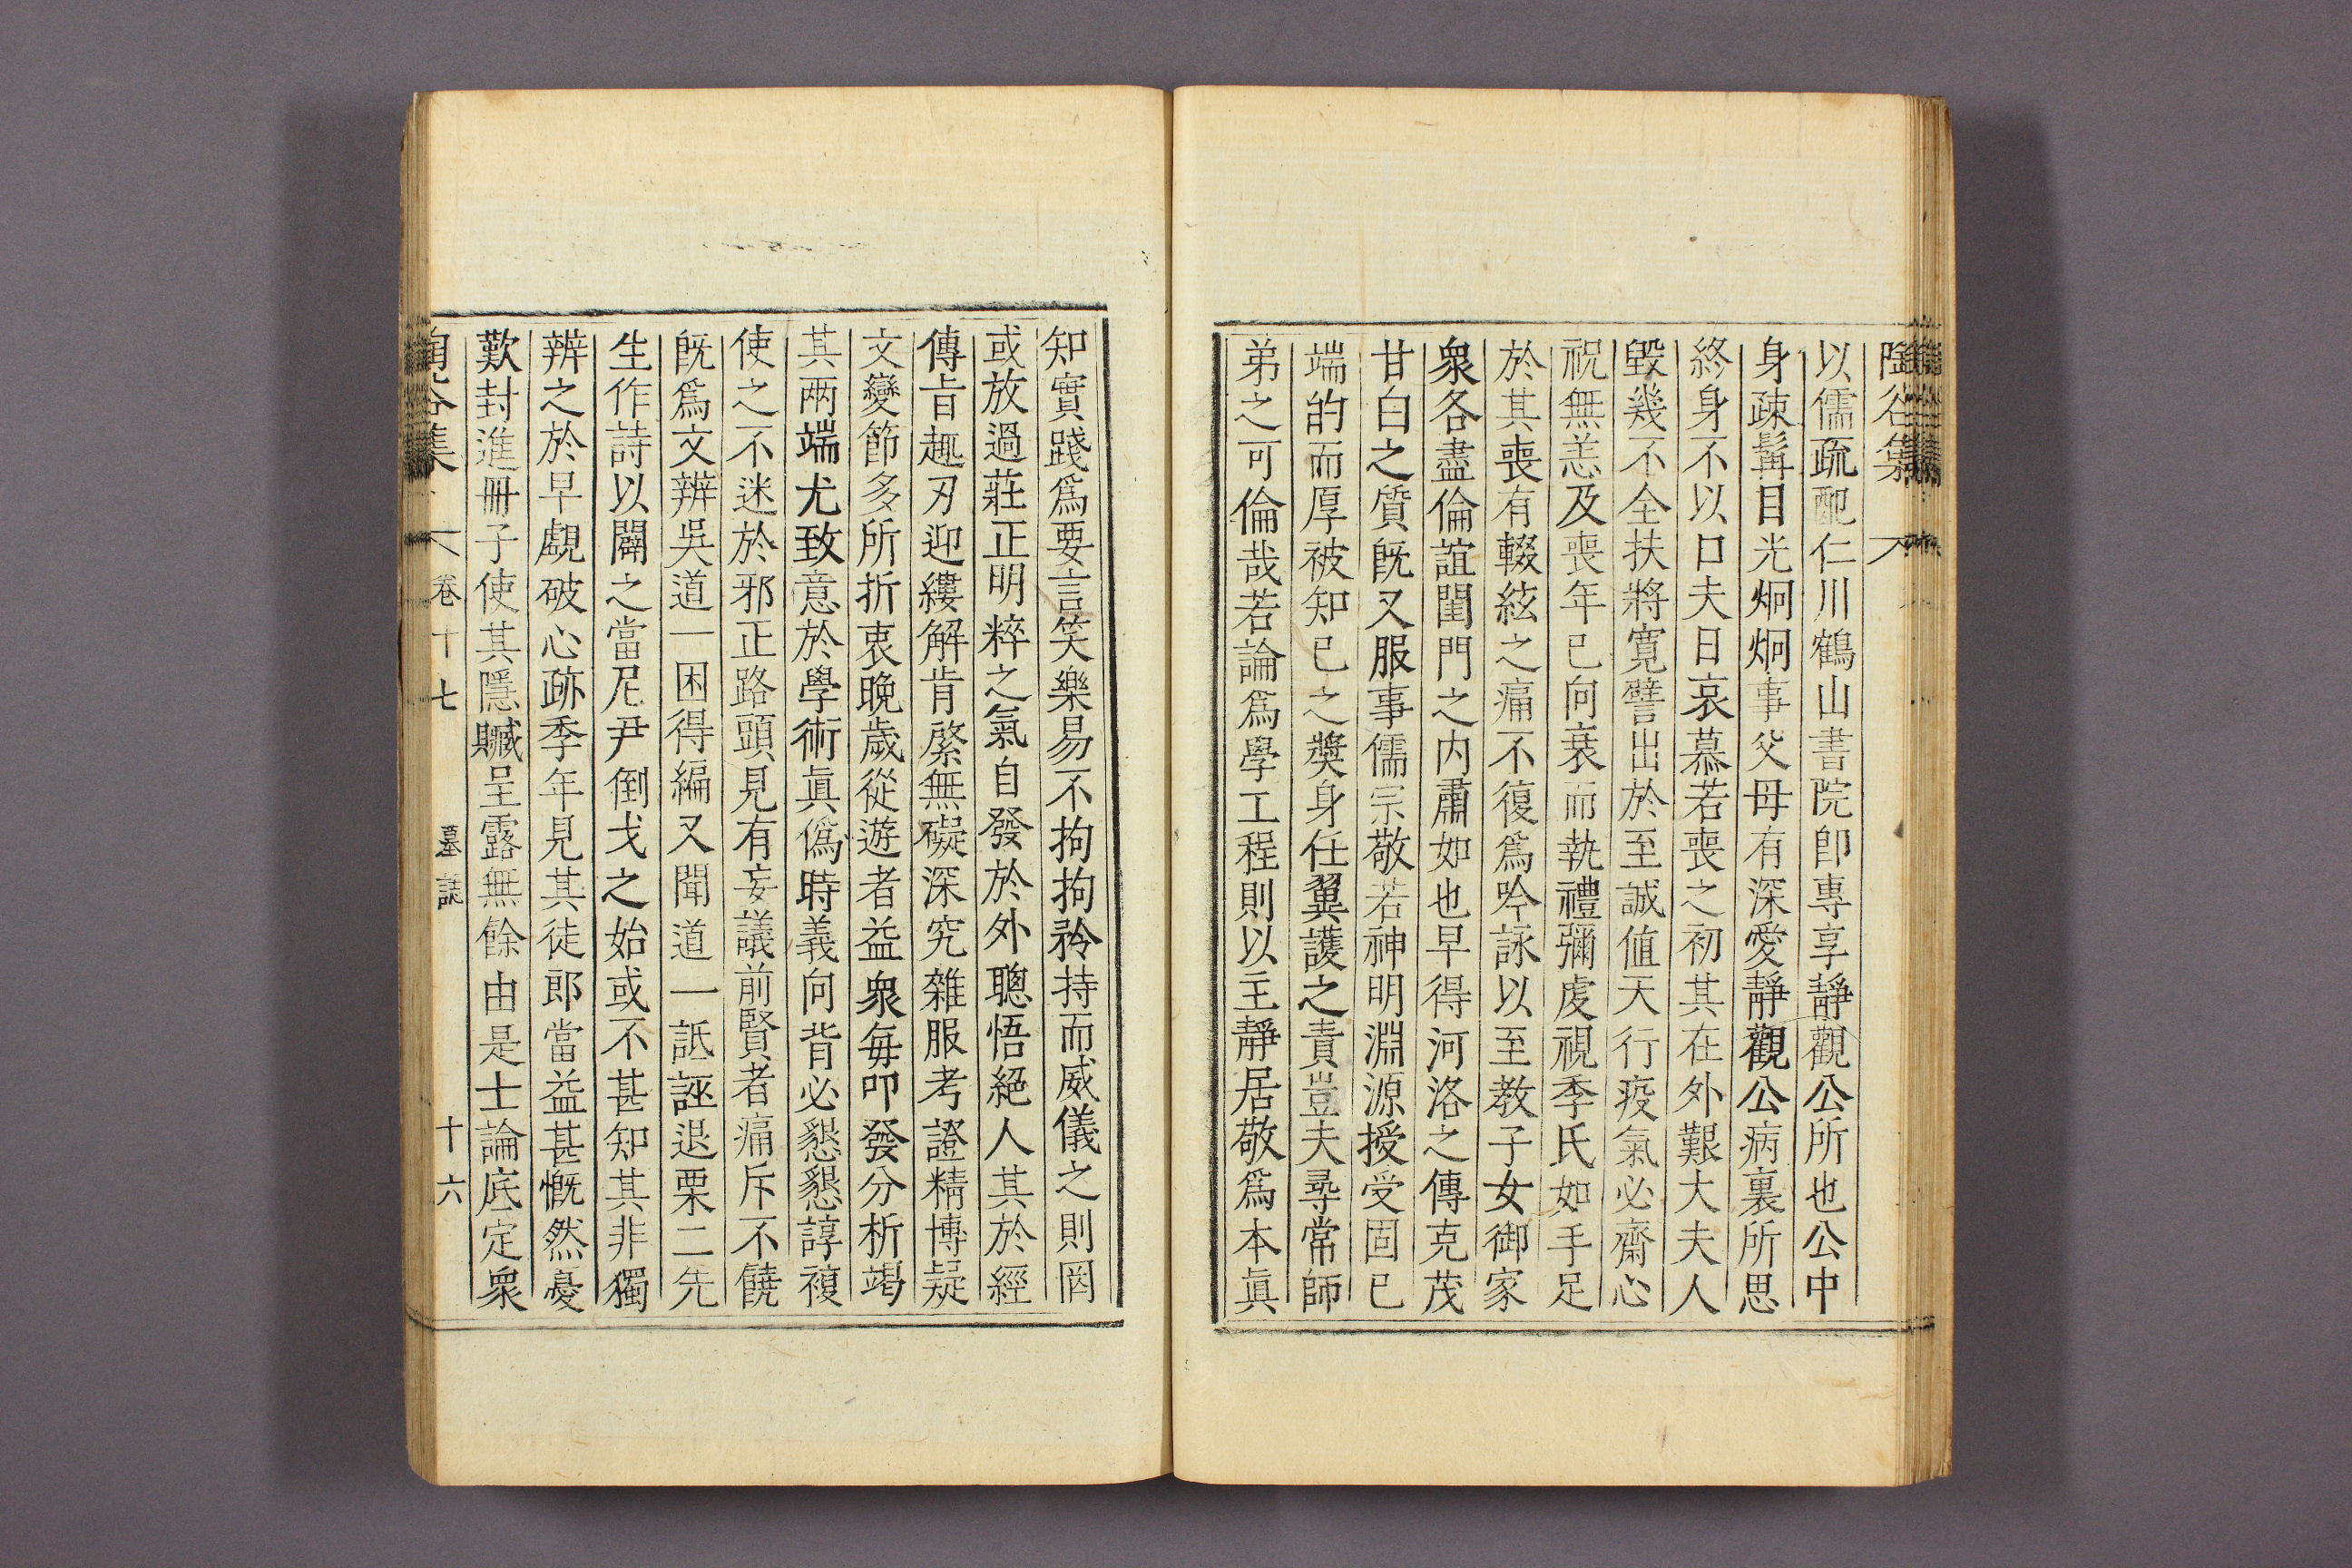 陶谷集
以儒疏配仁川鶴山書院卽專享靜觀公所也公中
身疎髯目光炯炯事父母有深愛靜觀公病裏所思
終身不以口夫日哀慕若喪之初其在外艱大夫人
毁幾不全扶將寬譬出於至誠値天行疫氣必齋心
祝無恙及喪年已向衰而執禮彌虔視季氏如手足
於其喪有輟絃之痛不復爲吟詠以至敎子女御家
衆各盡倫誼閨門之內肅如也早得河洛之傳克茂
甘白之質旣又服事儒宗敬若神明淵源授受固已
端的而厚被知已之奬身任翼護之責豈夫尋常師
弟之可倫哉若論爲學工程則以主靜居敬爲本眞
知實踐爲要言笑樂易不拘拘矜持而威儀之則罔
或放過莊正明粹之氣自發於外聰悟絕人其於經
傳旨趣刃迎縷解肯綮無礙深究雜服考證精博疑
文變節多所折衷晩歲從遊者益衆每叩發分析竭
其兩端尤致意於學術眞僞時義向背必懇懇諄複
使之不迷於邪正路頭見有妄議前賢者痛斥不饒
旣爲文辨吳道一困得編又聞道一詆誣退栗二先
生作詩以闢之當尼尹倒戈之始或不甚知其非獨
辨之於早覷破心跡季年見其徒郞當益甚慨然憂
歎封進冊子使其隱贓呈露無餘由是士論底定衆
陶谷集 卷十七 墓誌 十六